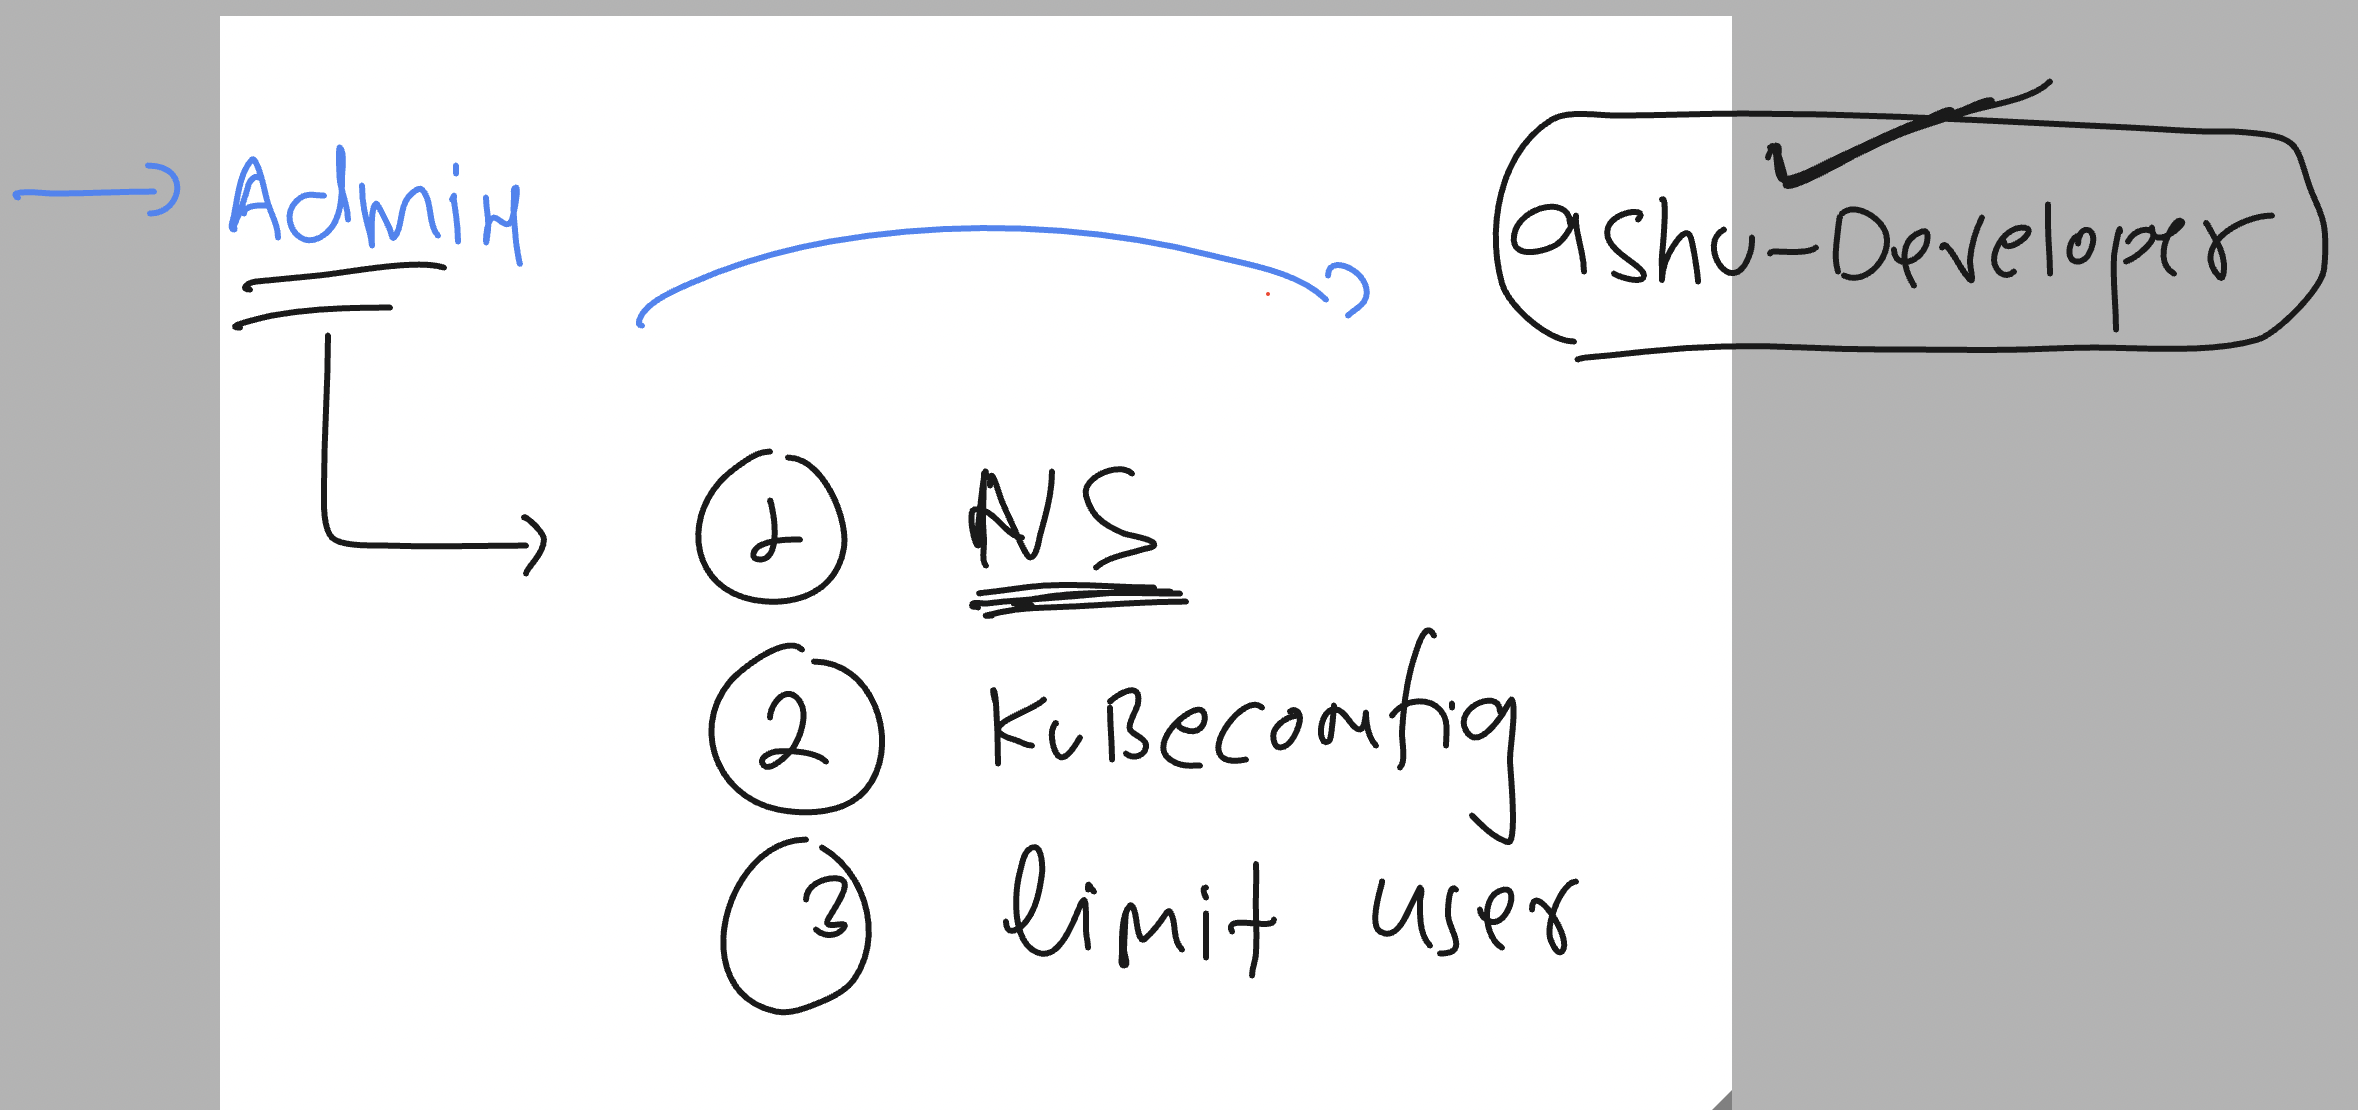 Admin
ashu-Developer
1 NS
2 KuBeconfig
3 limit user